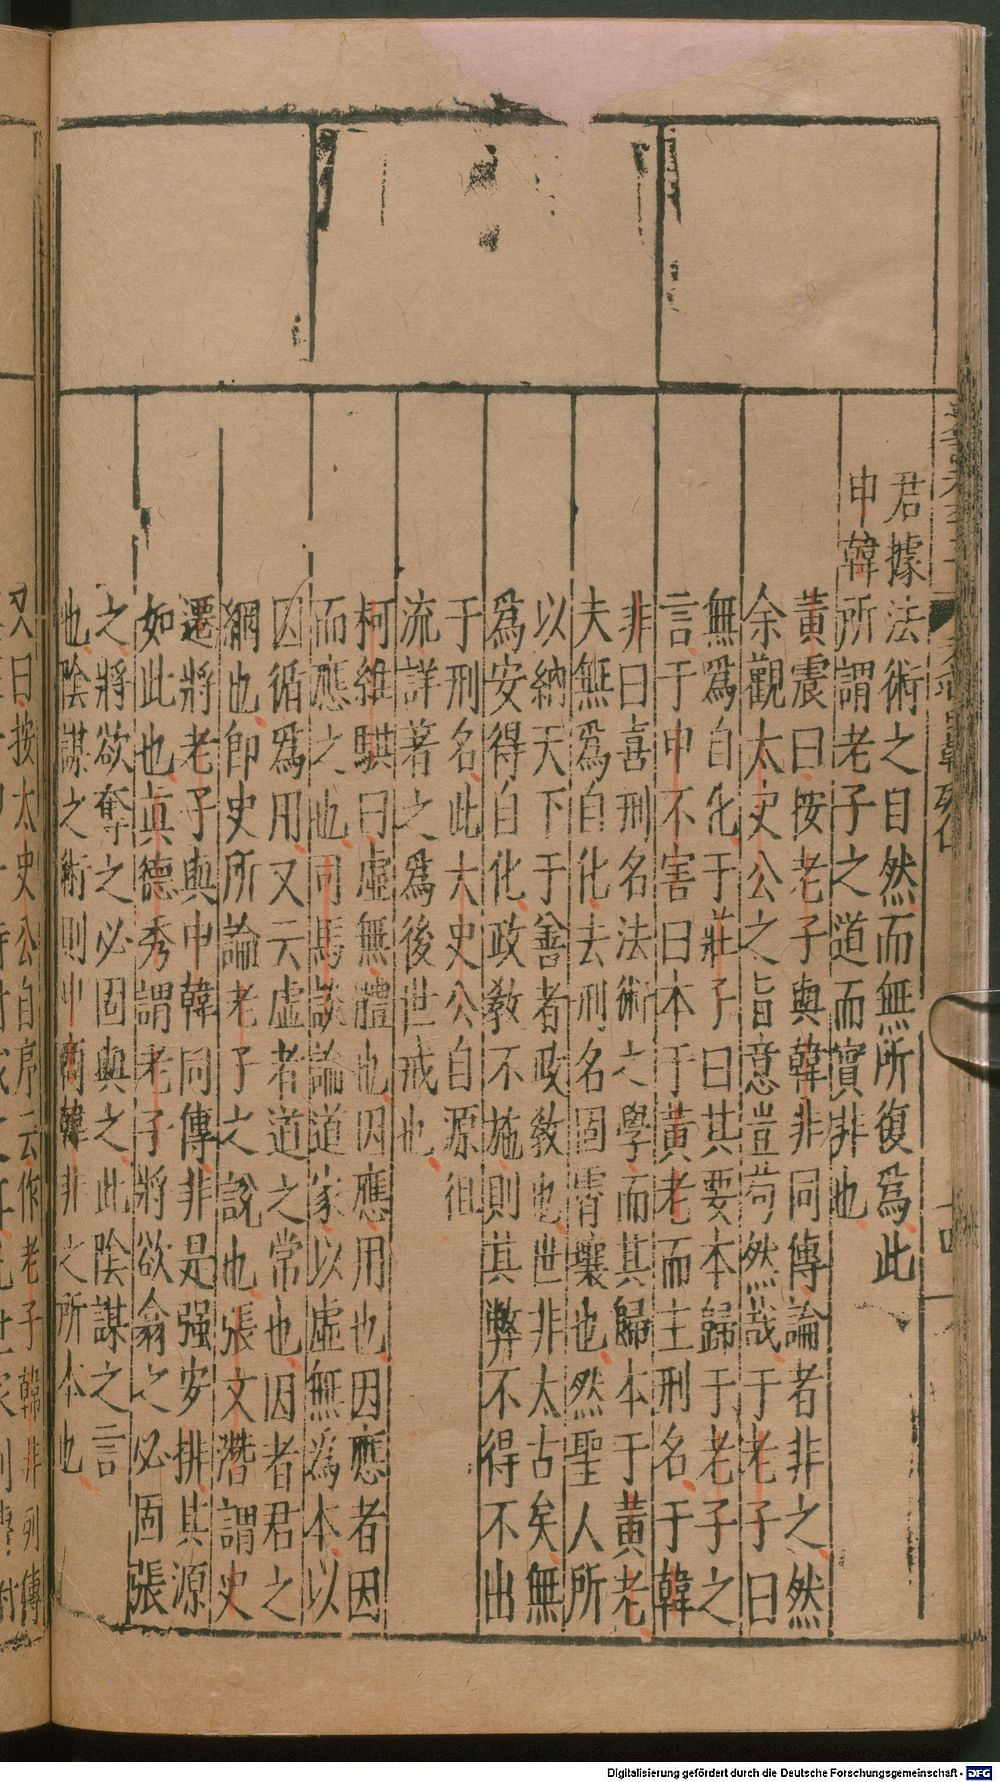 君據法術之自然而無所復爲此
申韓所謂老子之道而實非也
黃震曰按老子與韓非同傳論者非之然
余觀太史公之旨意豈苟然哉于老子曰
無爲自化于莊子曰其要本歸于老子之
言于申不害曰本于黃老而主刑名于韓
非曰喜刑名法術之學而其歸本于黃老
夫無爲自化去刑名固霄壤也然聖人所
以納天下于善者政敎也世非太古矣無
爲安得自化政敎不施則其弊不得不出
于刑名此太史公自源徂
流詳著之爲後世戒也
柯維騏曰虛無體也因應用也因應者因
而應之也司馬談論道家以虛無爲本以
因循爲用又云虛者道之常也因者君之
綱也卽史所論老子之說也張文潛謂史
遷將老子與申韓同傳非是强安排其源
如此也眞德秀謂老子將欲翕之必固張
之將欲奪之必固與之此陰謀之言
也陰謀之術則申商韓非之所本也
又曰按太史公自序云作老子韓非列傳
列傳
十四
Digitalisierung gefördert durch die Deutsche Forschungsgemeinschaft - DFG